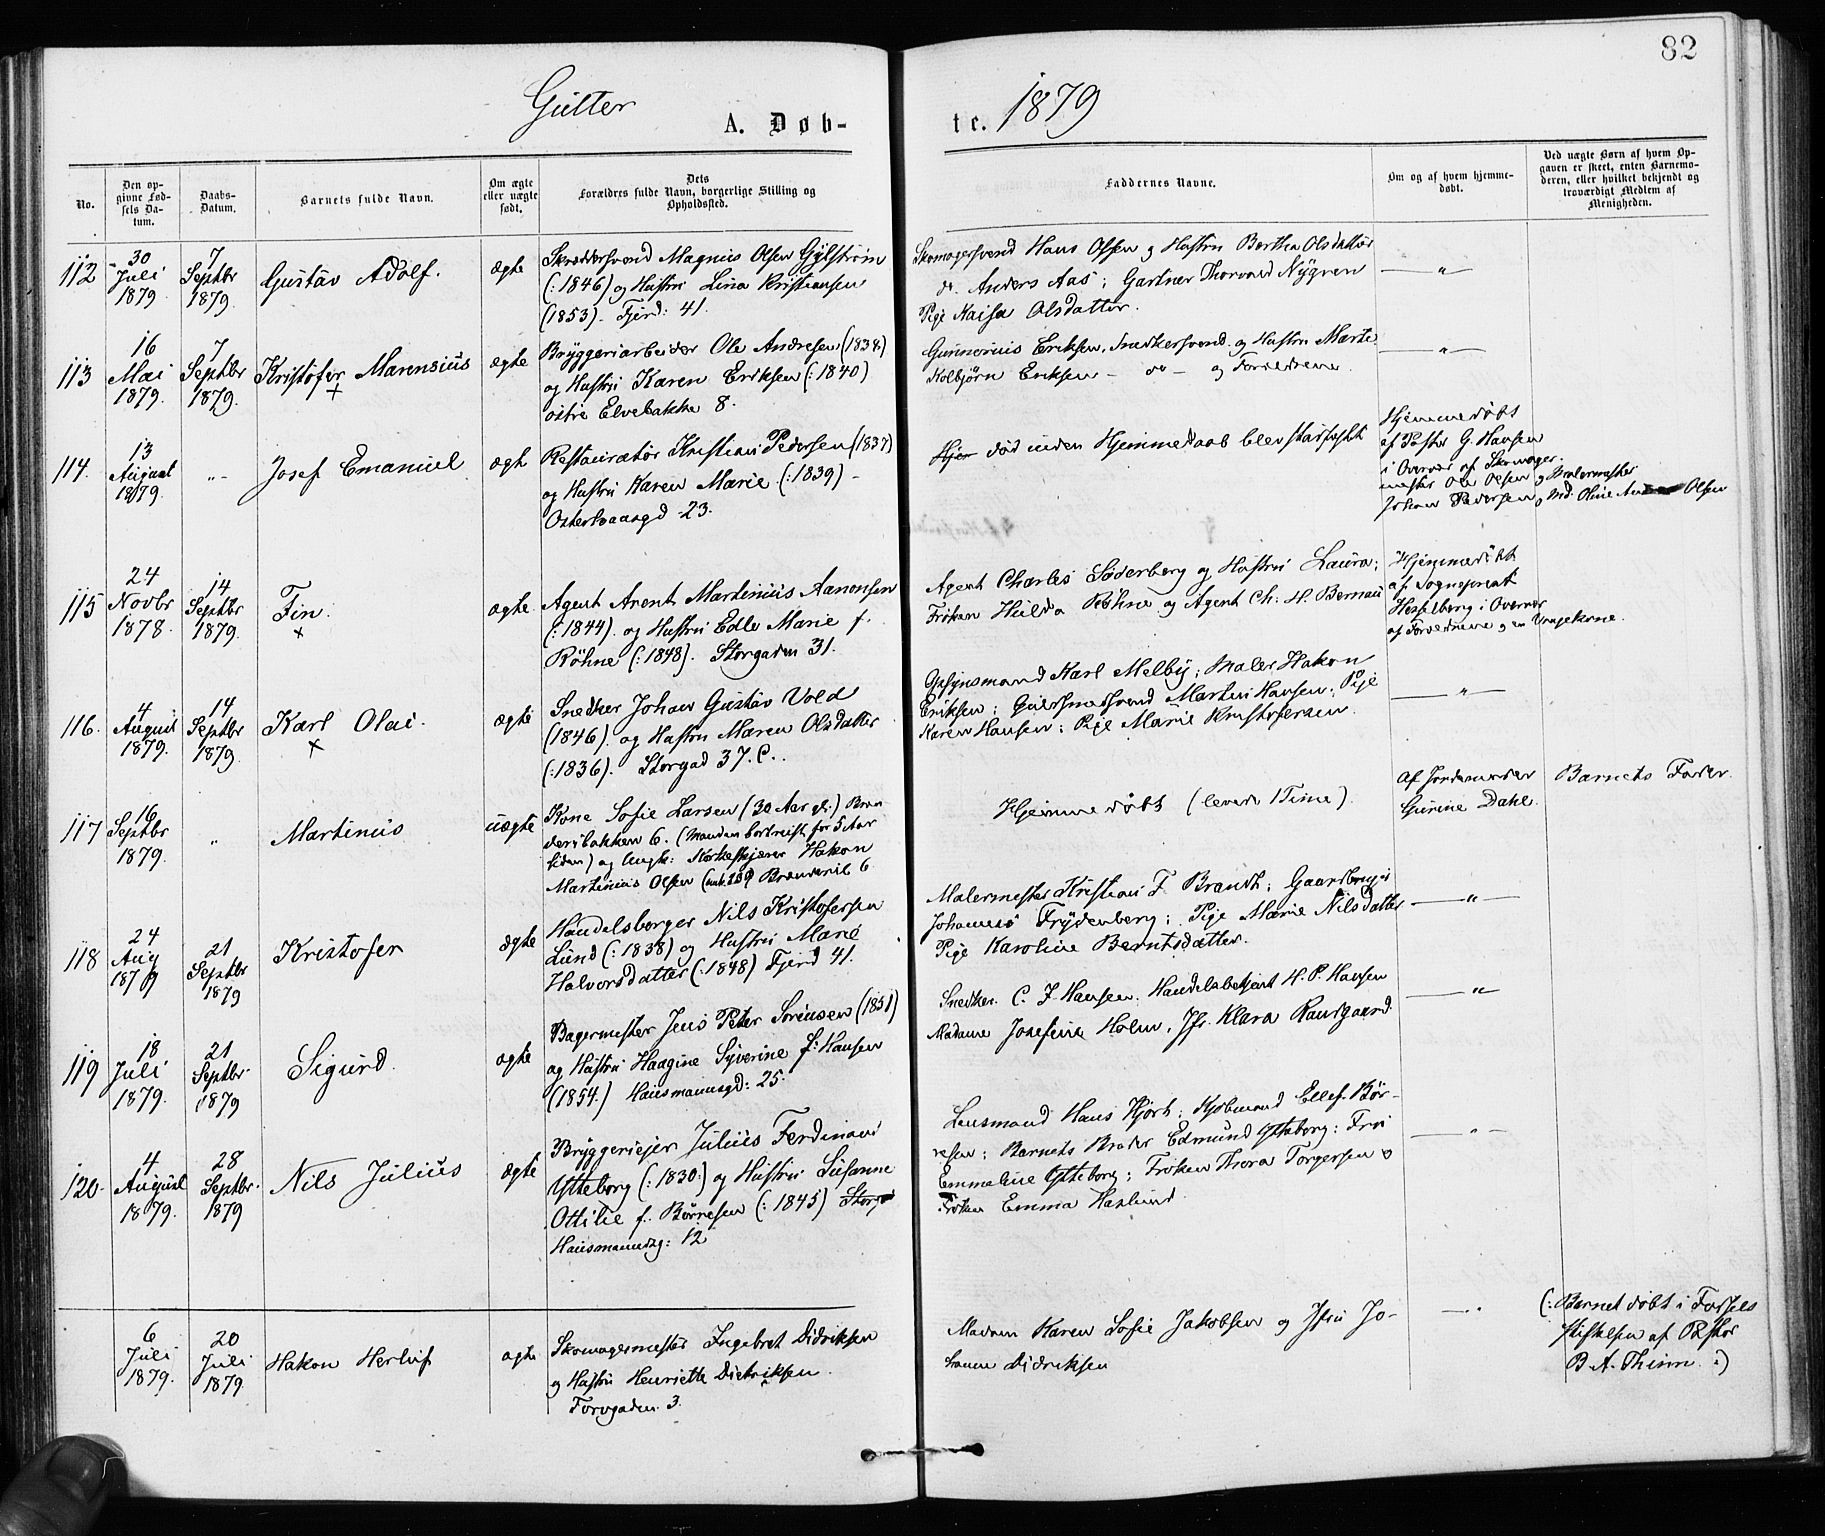 82
Gutter
A. Døb-
te. 1879
No.
Den op-
givne Fød-
sels Da-
tum.
Daabs-
Datum.
Barnets fulde Navn.
Om ægte
eller uægte
født.
Dets
Forældres fulde Navn, borgerlige Stilling og
Opholdssted.
Faddernes Navne.
Om og af hvem hjemme-
døbt.
Ved uægte Børn af hvem Op-
gaven er skeet, enten Barnemo-
deren, eller hvilket bekjendt og
troværdigt Medlem af
Menigheden.
112
30
Juli
1879
7
Septbr
1879.
Gustav Adolf.
ægte
Skræddersvend Magnus Olsen Gylstrøm
(:1846) og Hustru Lina Kristiansen
(1853). Fjerd: 41.
Skomagersvend Hans Olsen og Hustru Bertha Olsdatter
do. Anders Aas; Gartner Thorvald Nygren
Pige Kaisa Olsdatter.
— " —
113
16
Mai
1879.
7
Septbr
1879.
Kristofer Marensius
+
ægte
Bryggeriarbeider Ole Andresen (1834.)
og Hustru Karen Eriksen (:1840)
østre Elvebakke 8.
Gunnerius Eriksen, Snedkersvend. og Hustru Marte
Kolbjørn Eriksen — do — og Forældrene.
— " —
114.
13
August
1879.
" -
Josef Emanuel
ægte
Restauratør Kristian Pedersen (1837)
og Hustru Karen Marie (:1839) -
23.
Hjem død inden Hjemmedaab blev stadfæstet
Hjemmedøbt
af Pastor G. Hansen
i Overvær af Skomager-
mester Ole Olsen og Malermester
Johan Pedersen og Md. Oline Olsen
115
24
Novbr
1878.
14
Septbr
1879.
Fin.
+
ægte
Agent Arent Martinius Aanonsen
(:1844). og Hustru Edle Marie f.
Røhne (:1848). Storgaden 31.
Agent Charles Søderberg og Hustru Laura;
Frøken Hulda Røhne og Agent Ch. H. Bernau
Hjemmedøbt
af Sogneprest
Hesselberg i Overvær
af Forældrene og en Vaagekone.
116.
4
August
1879.
14
Septbr
1879.
Karl Olai.
+
ægte
Snedker Johan Gustav Vold
(1846). og Hustru Maren Olsdatter
(:1836). Storgad 37. C..
Opsynsmand Karl Melby; Maler Hakon
Eriksen; Guldsmedsvend Martin Hansen; Pige
Karen Hansen; Pige Marie Kristofersen.
— " —
117
16
Septbr
1879.
"
Martinius
uægte
Kone Sofie Larsen (30 Aar gl.) Bran
deribakken 6. (Manden bortreist for 5 Aar
siden) og Ungk: Korkeskjærer Hakon
Martinius Olsen 6
Hjemmedøbt (levede 1 Time).
Af Jordemoder
Gurine Dahl.
Barnets Fader.
118
24
Aug
1879
21
Septbr
1879
Kristofer
ægte
Handelsborger Nils Kristofersen
Lund (:1838) og Hustru Marie
Halvorsdatter (:1848) Fjerd 41.
Malermester Kristian F. Brandt; Gaardbruger
Johannes Frydenberg; Pige Marie Nilsdatter
Pige Karoline Berntsdatter.
— " —
119
18
Juli
1879.
21
Septbr.
1879
Sigurd.
ægte
Bagermester Jens Peter Sørensen (1851)
og Hustru Haagine Syverine f: Hansen
(1854.) Hausmannsgd: 25.
Snedker. C. J. Hansen. Handelsbetjent H. P. Hansen
Madame Josefine Holm. Jfr. Klara Ransgaard.
— " —
120.
4
August
1879.
28
Septbr.
1879
Nils Julius
ægte
Bryggerieier Julius Ferdinand
Ytteborg (:1830:) og Hustru Susanne
Ottilie f. Børresen (:1845)
Hausmannsg: 12
Lensmand Hans Hjorth; Kjøbmand Ellef Bør-
resen; Barnets Broder Edmund Ytteborg; Fru
Emmeline Ytteborg; Frøken Thora Torgersen o
Frøken Emma Haslund.
— " —
6
Juli
1879.
20
Juli
1879.
Hakon Herluf
ægte
Skomagermester Ingebret Didriksen
og Hustru Henriette Dietriksen.
Torvgaden 3.
Madam Karen Sofie Jakobsen og Jfru Jo-
hanne Didriksen
— "
(: Barnet døbt i Fødsels
stiftelsen af Pastor
B. A. Thinn. :)